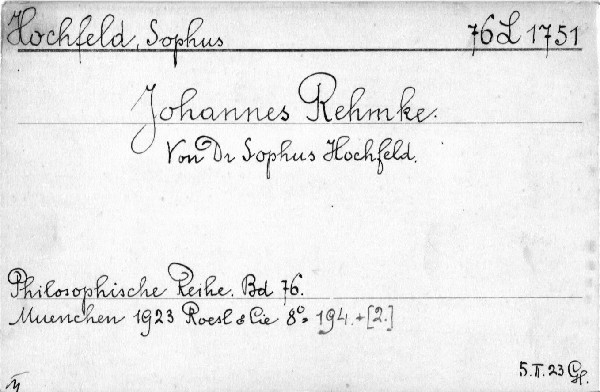 Hochfeld, Sophus 76L1751
Johannes Rehmke.
Von Dr Sophus Hochfeld.
Philosophische Reihe. Bd 76.
Muenchen 1923 Roesl & Cie 8°= 194.+[2.]
5.II.23